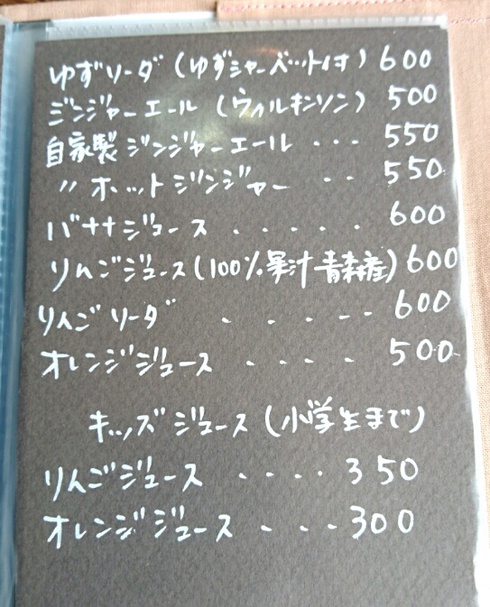 ゆずソーダ（ゆずシャーベット付）600
ジンジャーエール（ウィルキンソン）500
自家製ジンジャーエール・・・550
〃ホットジンジャー・・550
バナナジュース・・・・・600
りんごジュース（100％果汁青森産）600
りんごソーダ・・・・・600
オレンジジュース・・・・500
キッズジュース（小学生まで）
りんごジュース・・・・350
オレンジジュース・・・300